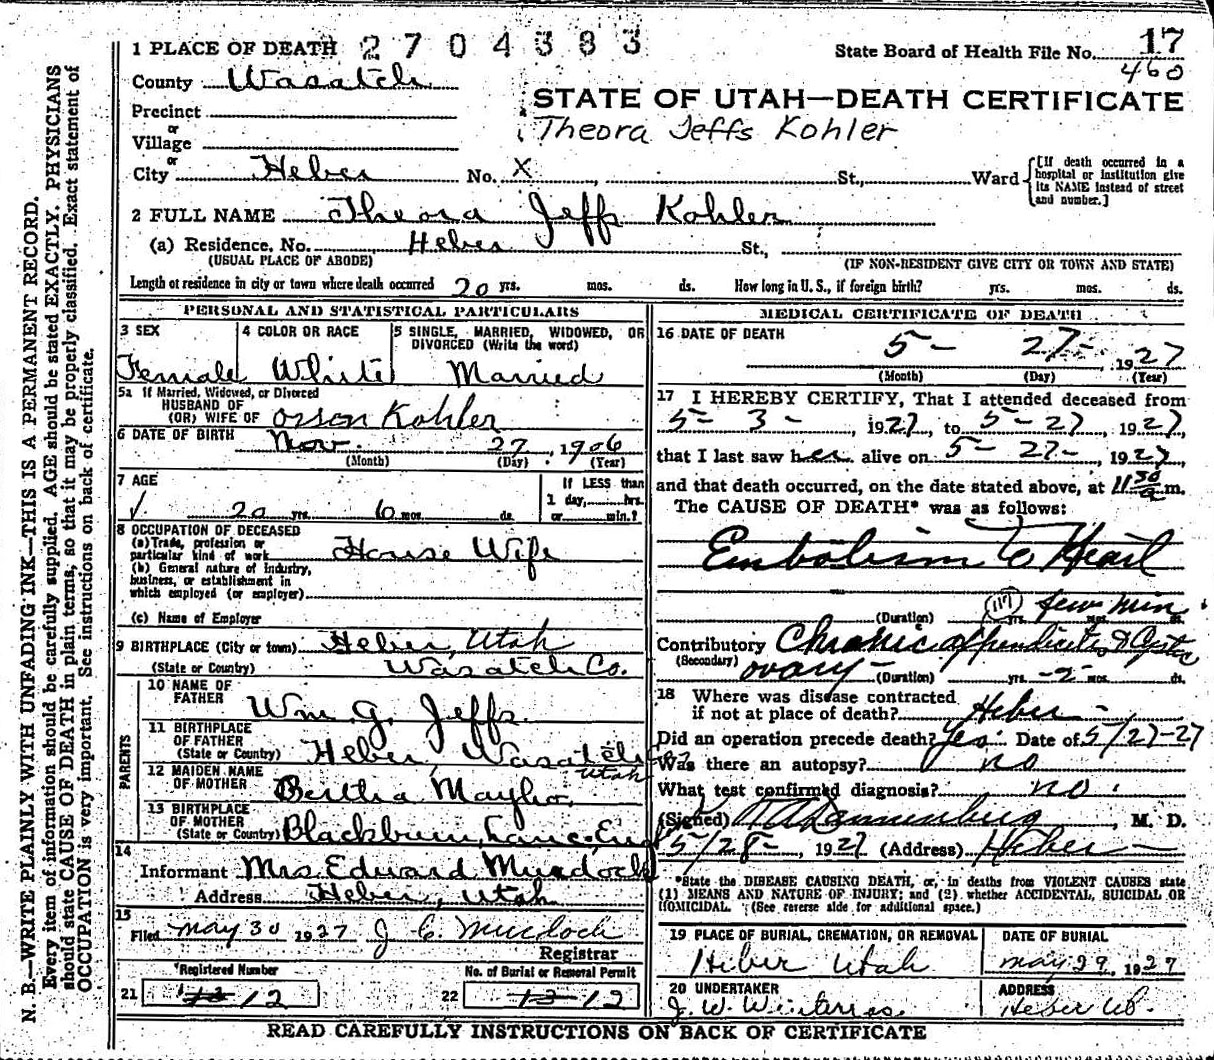 1 PLACE OF DEATH 2704383
State Board of Health File No. 17
460
County Wasatch
STATE OF UTAH—DEATH CERTIFICATE
Precinct
Theora Jeffs Kohler
or
Village
or
City Heber No. X, St., Ward
[If death occurred in a
hospital or institution give
its NAME instead of street
and number.]
2 FULL NAME Theora Jeffs Kohler
(a) Residence, No. Heber St.,
(USUAL PLACE OF ABODE) (IF NON-RESIDENT GIVE CITY OR TOWN AND STATE)
Length of residence in city or town where death occurred 20 yrs. mos. ds. How long in U. S., if foreign birth? yrs. mos. ds.
PERSONAL AND STATISTICAL PARTICULARS
3 SEX
Female
4 COLOR OR RACE
White
5 SINGLE, MARRIED, WIDOWED, OR
DIVORCED (Write the word)
Married
5a If Married, Widowed, or Divorced
HUSBAND OF
(OR) WIFE OF Orson Kohler
6 DATE OF BIRTH Nov. 27, 1906
(Month) (Day) (Year)
7 AGE
20 yrs. 6 mos. ds.
If LESS than
1 day, hrs.
or min.?
8 OCCUPATION OF DECEASED
(a) Trade, profession or
particular kind of work House Wife
(b) General nature of industry,
business, or establishment in
which employed (or employer)
(c) Name of Employer
9 BIRTHPLACE (City or town) Heber, Utah
(State or Country) Wasatch Co.
PARENTS
10 NAME OF
FATHER Wm. G. Jeffs
11 BIRTHPLACE
OF FATHER
(State or Country) Heber, Wasatch
Utah
12 MAIDEN NAME
OF MOTHER Bertha Mayho
13 BIRTHPLACE
OF MOTHER
(State or Country) Blackburn, Lanc. Eng
14
Informant Mrs. Edward Murdock
Address Heber, Utah
15
Filed May 30 1927 J. C. Murdoch
Registrar
Registered Number
21 12
No. of Burial or Removal Permit
22 13 12
MEDICAL CERTIFICATE OF DEATH
16 DATE OF DEATH
5- 27- 1927
(Month) (Day) (Year)
17 I HEREBY CERTIFY, That I attended deceased from
5-3-, 1927, to 5-27, 1927
that I last saw her alive on 5-27-, 1927,
and that death occurred, on the date stated above, at 11 50/a m.
The CAUSE OF DEATH* was as follows:
Embolism to Heart
(117) few min.
(Duration) yrs. mos. ds.
Contributory Chronic appendicitis & Cystic
(Secondary) ovary- (Duration) yrs. -2- mos. ds.
18 Where was disease contracted
if not at place of death? Heber-
Did an operation precede death? Yes. Date of 5/27-27
Was there an autopsy? no
What test confirmed diagnosis? no.
(Signed) Dannenburg, M. D.
5/28-, 1927 (Address) Heber-
*State the DISEASE CAUSING DEATH, or, in deaths from VIOLENT CAUSES state
(1) MEANS AND NATURE OF INJURY; and (2) whether ACCIDENTAL, SUICIDAL OR
HOMICIDAL. (See reverse side for additional space.)
19 PLACE OF BURIAL, CREMATION, OR REMOVAL
Heber Utah
DATE OF BURIAL
May 29, 1927
20 UNDERTAKER
J. W. Winterose
ADDRESS
Heber Ut.
READ CAREFULLY INSTRUCTIONS ON BACK OF CERTIFICATE
N. B.—WRITE PLAINLY WITH UNFADING INK—THIS IS A PERMANENT RECORD.
Every item of information should be carefully supplied. AGE should be stated EXACTLY. PHYSICIANS
should state CAUSE OF DEATH in plain terms, so that it may be properly classified. Exact statement of
OCCUPATION is very important. See instructions on back of certificate.